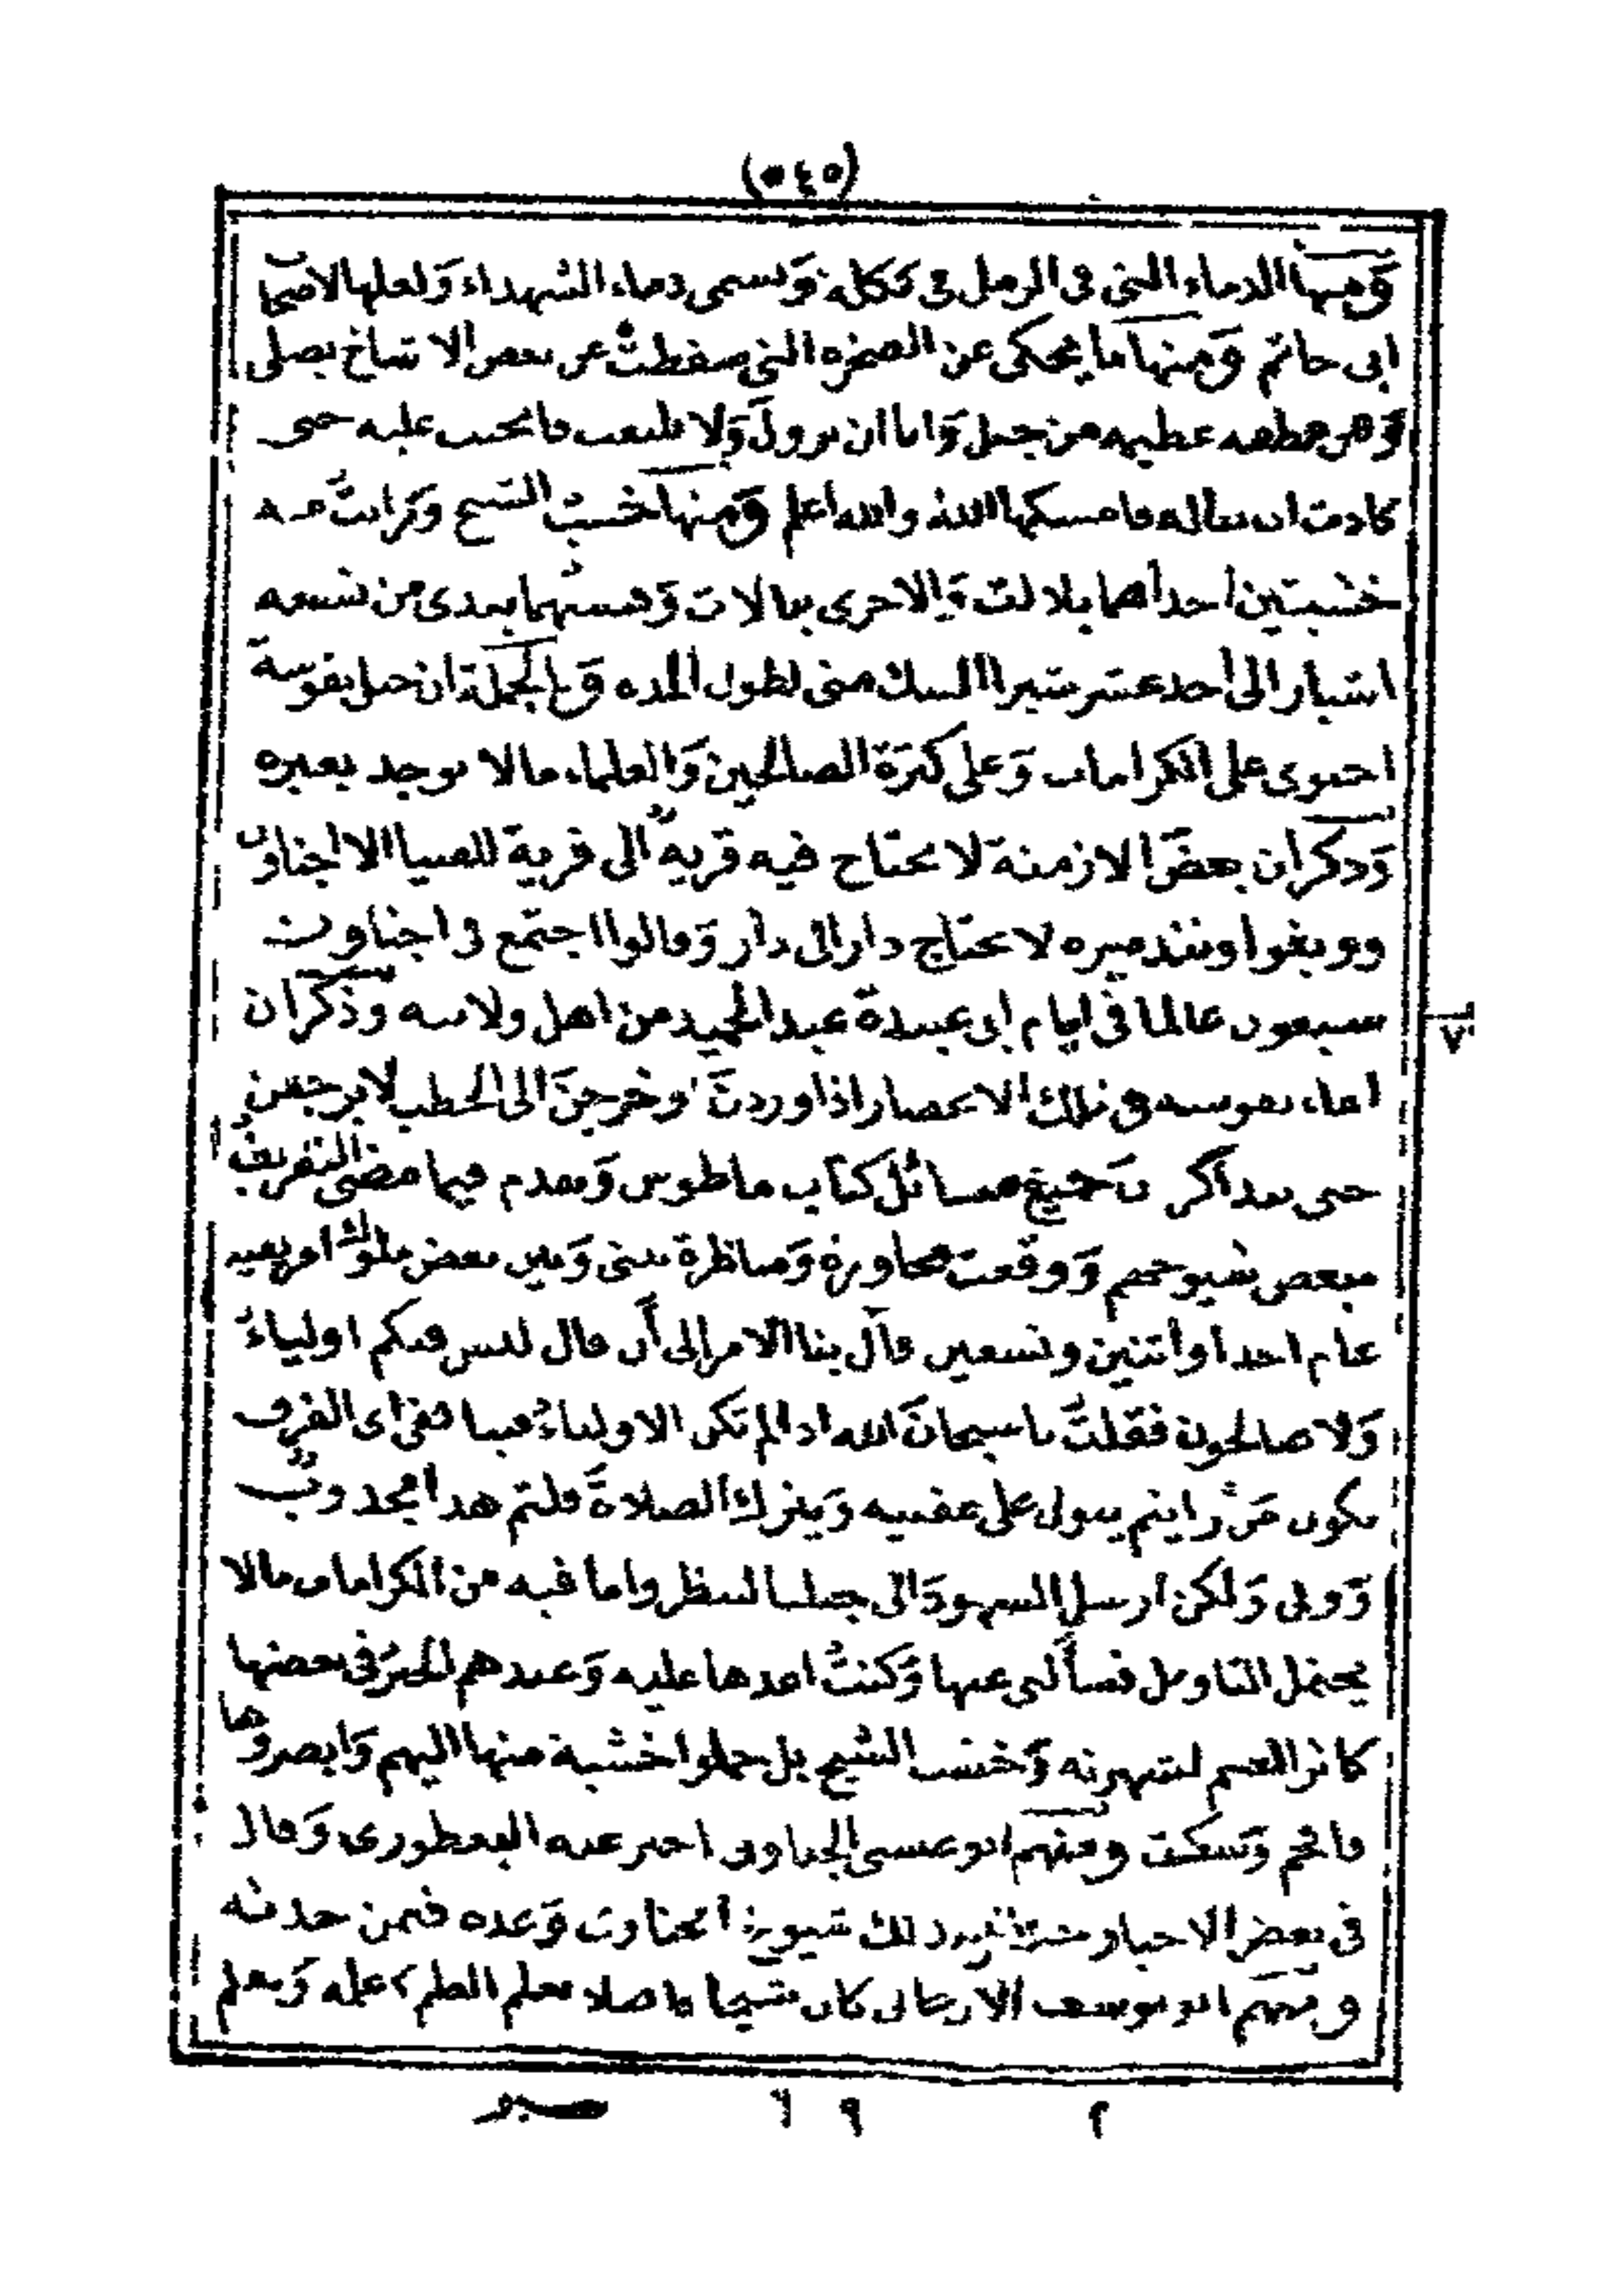 (٥٤٥)
ومنها الدماء التي في الرمل في ككله وتسمى دماء الشهداء ولعلها لأصحاب
ابي حاتم ومنها ما يحكى عن الصخرة التي سقطت عن بعض الاشياخ يصلي
وهي قطعة عظيمة من جبل وابا ان يزول ولا فانجب عليه حتى
كادت ان تناله فامسكها الله والله اعلم ومنها خشب الشيخ ورايت منه
خشبتين احداهما بلالت والاخرى بتالات وقستهما بيدي من تسعة
اشبار الى احد عشر شبرا الشك مني لطول المدة وفي الجملة ان جبل نفوسة
احتوى على الكرامات وعلى كثرة الصالحين والعلماء ما لا يوجد بغيره
وذكر ان بعض الازمنة لا تحتاج فيه قرية الى قرية للفتيا الا اجناون
وويغوا وتندميره لا تحتاج دار الى دار وقالوا اجتمع في اجناون
سبعون عالما في ايام ابي عبيدة عبد الحميد من اهل ولايته وذكر ان
اماء نفوسة في تلك الاعصار اذا وردن او خرجن الى الحطب لا يرجعن
حتى يتذاكرن جميع مسائل كتاب ماطوس وتقدم فيما مضى التعريف
ببعض شيوخهم ووقعت محاورة ومناظرة بيني وبين بعض ملوك افريقية
عام احد او اثنين وتسعين فآل بنا الامر الى أن قال ليس فيكم اولياء
ولا صالحون فقلت يا سبحان الله اذا لم تكن الاولياء فينا ففي اي الفرق
تكون من رايتم يبول على عقبيه ويترك الصلاة قلتم هذا مجذوب
وولي ولكن ارسل الشهود الى جبلنا لينظروا ما فيه من الكرامات ما لا
يحتمل التاويل فسألني عنها وكنت اعدها عليه وعندهم الخبر في بعضها
كاثر القسم لشهرته وخشب الشيخ بل حملوا خشبة منها اليهم وابصروها
فافحم وسكت ومنهم ابو عيسى الجناوني اخبر عنه البغطوري وقال
في بعض الاخبار ذلك شيوخ اجناون وعده فيمن حدثه
ومنهم ابو يوسف كان شيخا فاضلا معلم العلم وعلمه ومعلم
٧
٢ ٩ ٦ سير